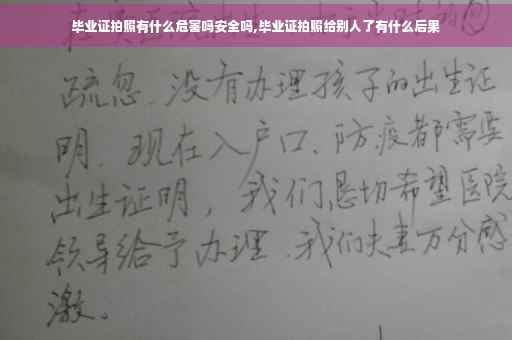 毕业证拍照有什么危害吗安全吗,毕业证拍照给别人了有什么后果
疏忽.没有办理孩子的出生证
明.现在入户口、防疫都需要
出生证明，我们恳切希望医院
领导给予办理.我们夫妻万分感
激。